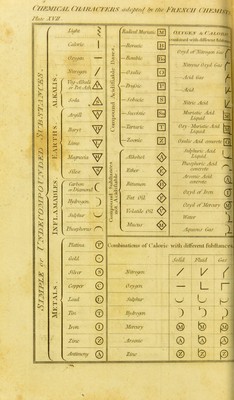 CHEMICAL CHARACTERS adopted by the FRENCH CHEMISTS
Plate XVII
SIMPLE or UNDECOMPOUNDED SUBSTANCES
ALKALIS.
EARTHS
INFLAMABLES.
METALS
Light
Caloric
Oxygen
Nitrogen
Veg. Alkali or Pot-Ash
Soda
Argill
Baryt
Lime
Magnesia
Silex
Carbon or Diamond
Hydrogen
Sulphur
Phosphorus
Platina
Gold
Silver
Copper
Lead
Tin
Iron
Zinc
Antimony
Compound Acidifiable Bases.
Radical Muriatic M
Boracic
Fluoric
Succinic
Tartaric T
Compound Substances not Acidifiable
Alkohol
Ether
Bitumen
Fixt Oil
Volatile Oil
Mucus
OXYGEN & CALORIC
combined with different
Oxyd of Nitrous Gas
Nitrous Oxyd Gas
Acid Gas
Nitric Acid
Muriatic Acid Liquid
Oxy Muriatic Acid Liquid
Oxalic Acid concrete
Sulphuric Acid Liquid
Phosphoric Acid concrete
Arsenic Acid concrete
Oxyd of Iron
Oxyd of Mercury
Water
Aqueous Gas
Combinations of Caloric with different Substances
Solid Fluid Gas
Nitrogen
Oxygen
Sulphur
Hydrogen
Mercury
Arsenic
Zinc